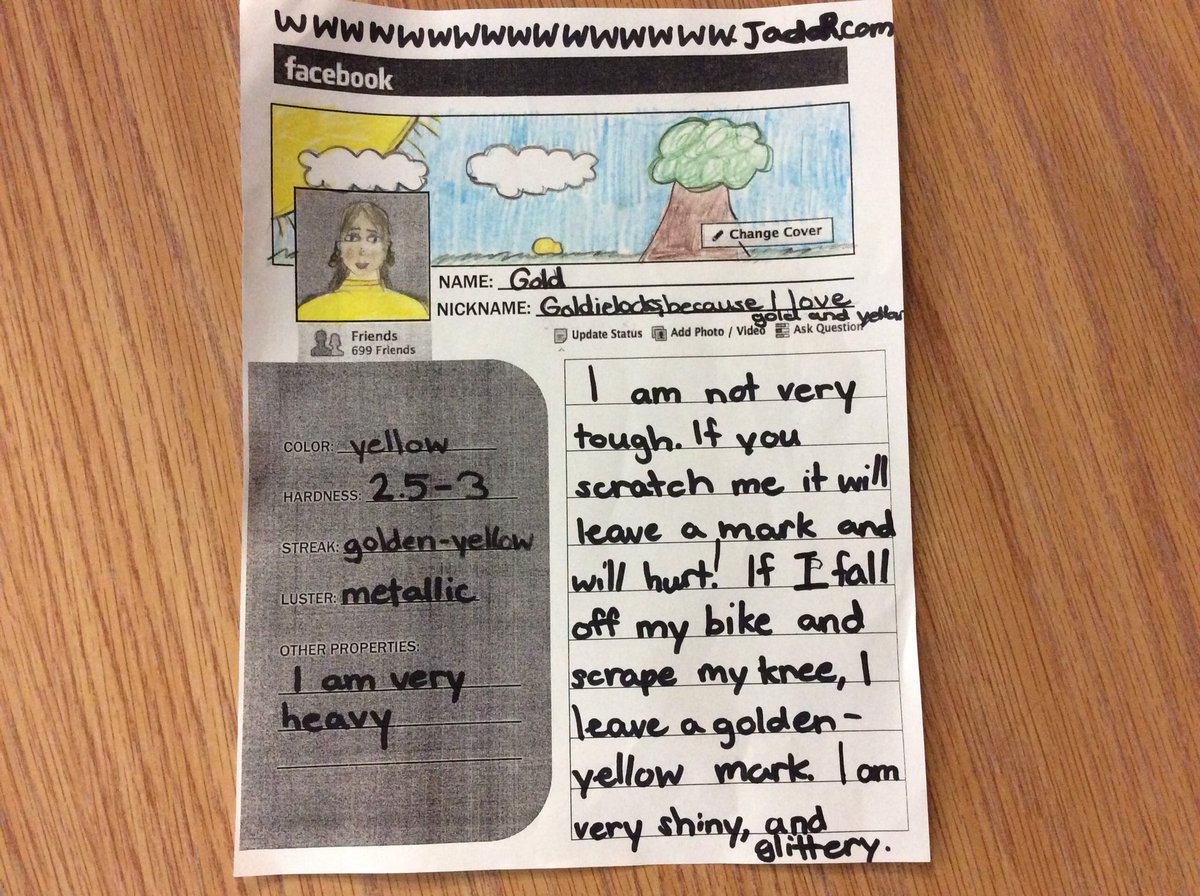 facebook
Change Cover
NAME: Gold
NICKNAME: Goldielocks, because I love
gold and yellow
Update Status Add Photo / Video Ask Question
Friends
699 Friends
COLOR: yellow
HARDNESS: 2.5-3
STREAK: golden-yellow
LUSTER: metallic
OTHER PROPERTIES:
I am very
heavy
I am not very
tough. If you
scratch me it will
leave a mark and
will hurt! If I fall
off my bike and
scrape my knee, I
leave a golden-
yellow mark. I am
very shiny, and
glittery.